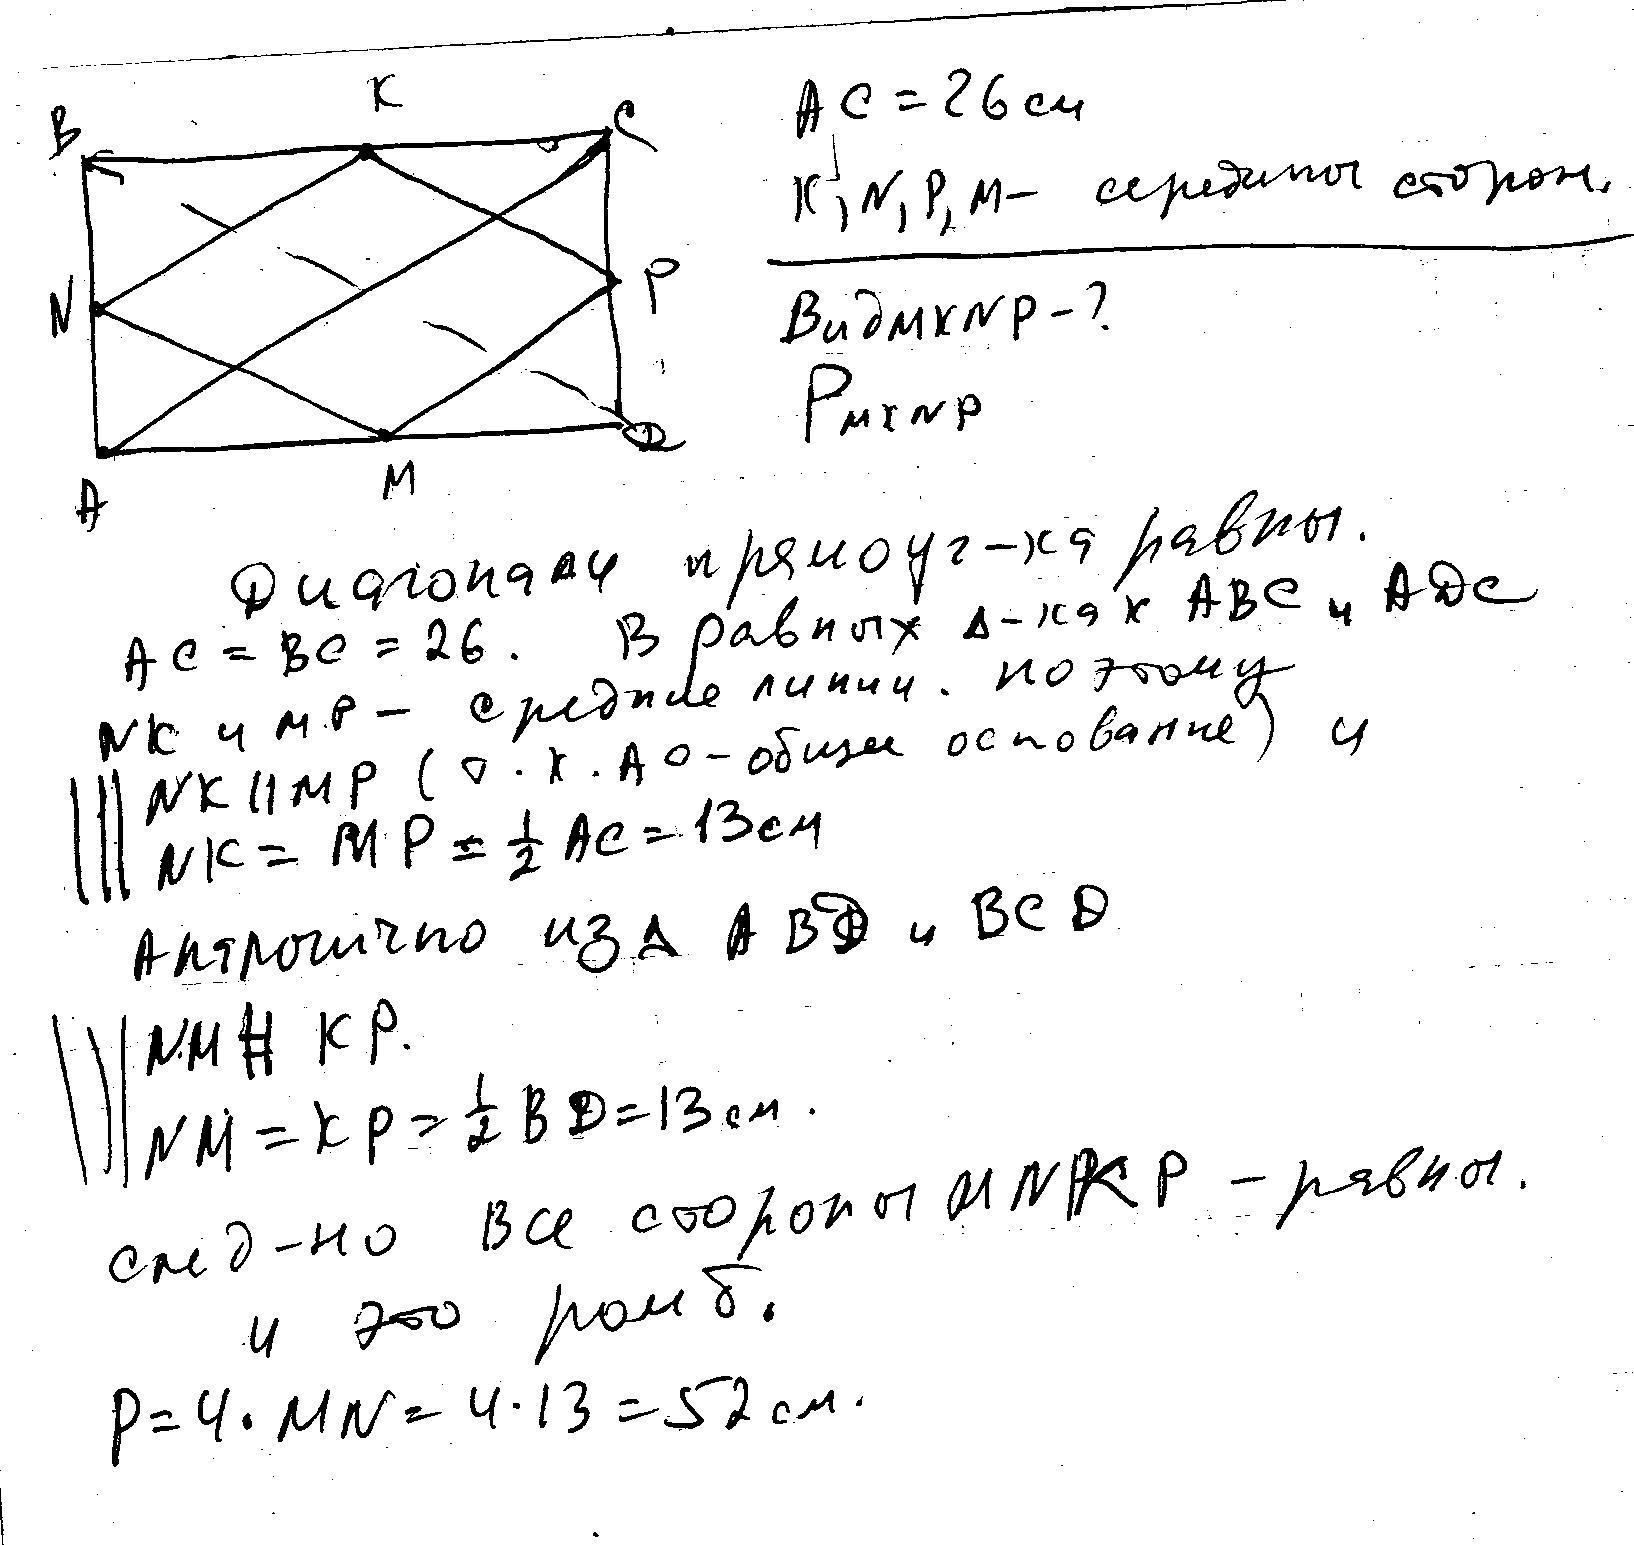 K
B
C
N
P
A
M
D
AC = 26 см
K, N, P, M – середины сторон.
Вид MKNP – ?
P MKNP
Диагонали прямоуг-ка равны.
AC = BC = 26. В равных Δ-ках ABC и ADC
NK и MP – средние линии. поэтому
NK || MP (т.к. AC – общее основание) и
NK = MP = 1/2 AC = 13 см
Аналогично из Δ ABD и BCD
NM || KP.
NM = KP = 1/2 BD = 13 см.
след-но все стороны MNKP – равны.
и это ромб.
P = 4 · MN = 4 · 13 = 52 см.